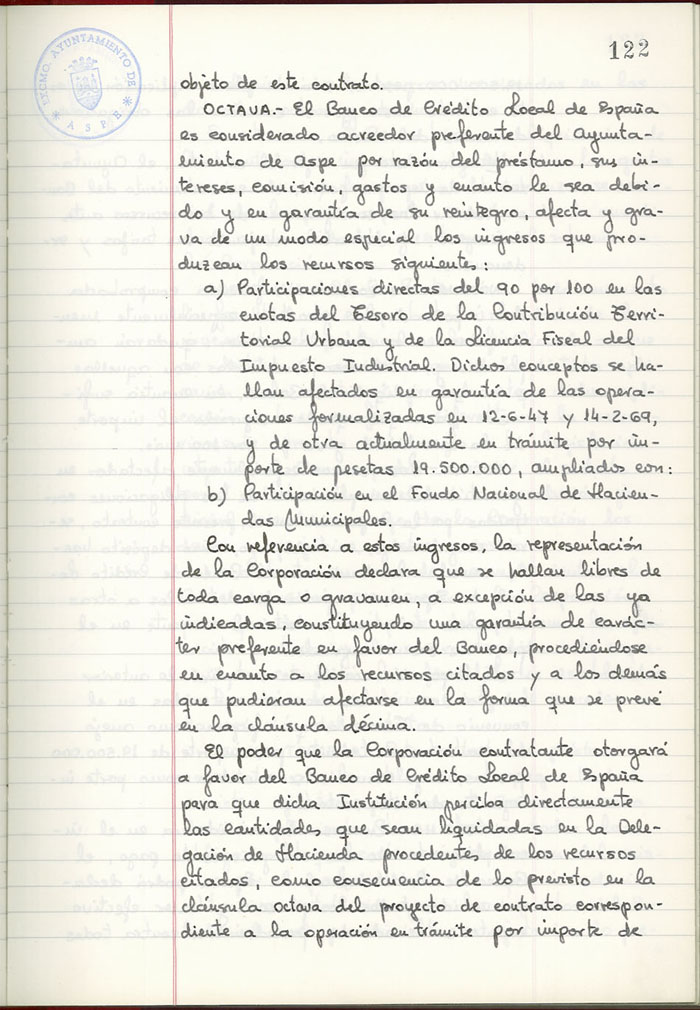 EXCMO. AYUNTAMIENTO DE
* ASPE *
122
objeto de este contrato.
OCTAVA.- El Banco de Crédito Local de España
es considerado acreedor preferente del Ayunta-
miento de Aspe por razón del préstamo, sus in-
tereses, comisión, gastos y cuanto le sea debi-
do y en garantía de su reintegro, afecta y gra-
va de un modo especial los ingresos que pro-
duzcan los recursos siguientes:
a) Participaciones directas del 90 por 100 en las
cuotas del Tesoro de la Contribución Terri-
torial Urbana y de la Licencia Fiscal del
Impuesto Industrial. Dichos conceptos se ha-
llan afectados en garantía de las opera-
ciones formalizadas en 12-6-47 y 14-2-69,
y de otra actualmente en trámite por im-
porte de pesetas 19.500.000, ampliados con:
b) Participación en el Fondo Nacional de Hacien-
das Municipales.
Con referencia a estos ingresos, la representación
de la Corporación declara que se hallan libres de
toda carga o gravamen, a excepción de las ya
indicadas, constituyendo una garantía de carác-
ter preferente en favor del Banco, procediéndose
en cuanto a los recursos citados y a los demás
que pudieran afectarse en la forma que se prevé
en la cláusula décima.
El poder que la Corporación contratante otorgará
a favor del Banco de Crédito Local de España
para que dicha Institución perciba directamente
las cantidades que sean liquidadas en la Dele-
gación de Hacienda procedentes de los recursos
citados, como consecuencia de lo previsto en la
cláusula octava del proyecto de contrato correspon-
diente a la operación en trámite por importe de